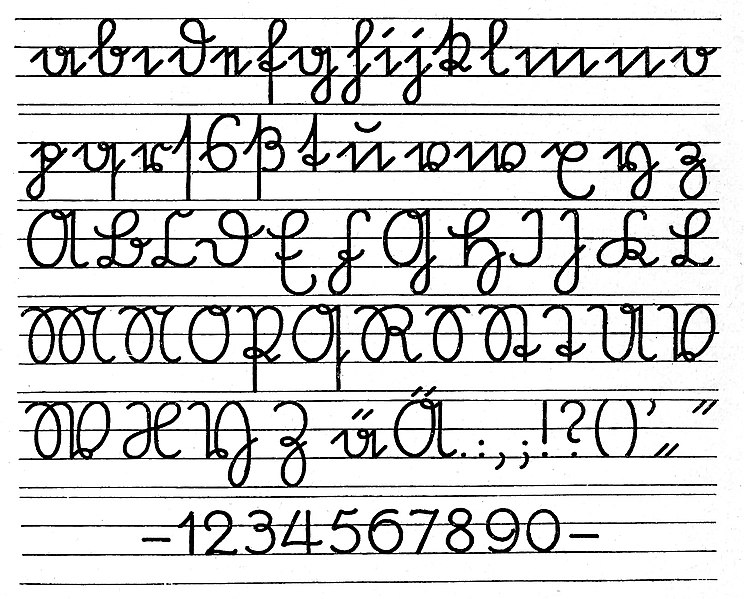 a b c d e f g h i j k l m n o
p q r ſ s ß t u v w x y z
A B C D E F G H I J K L
M N O P Q R S St T U V
W X Y Z ä Ä . : , ; ! ? ( ) ’ „ ”
– 1 2 3 4 5 6 7 8 9 0 –